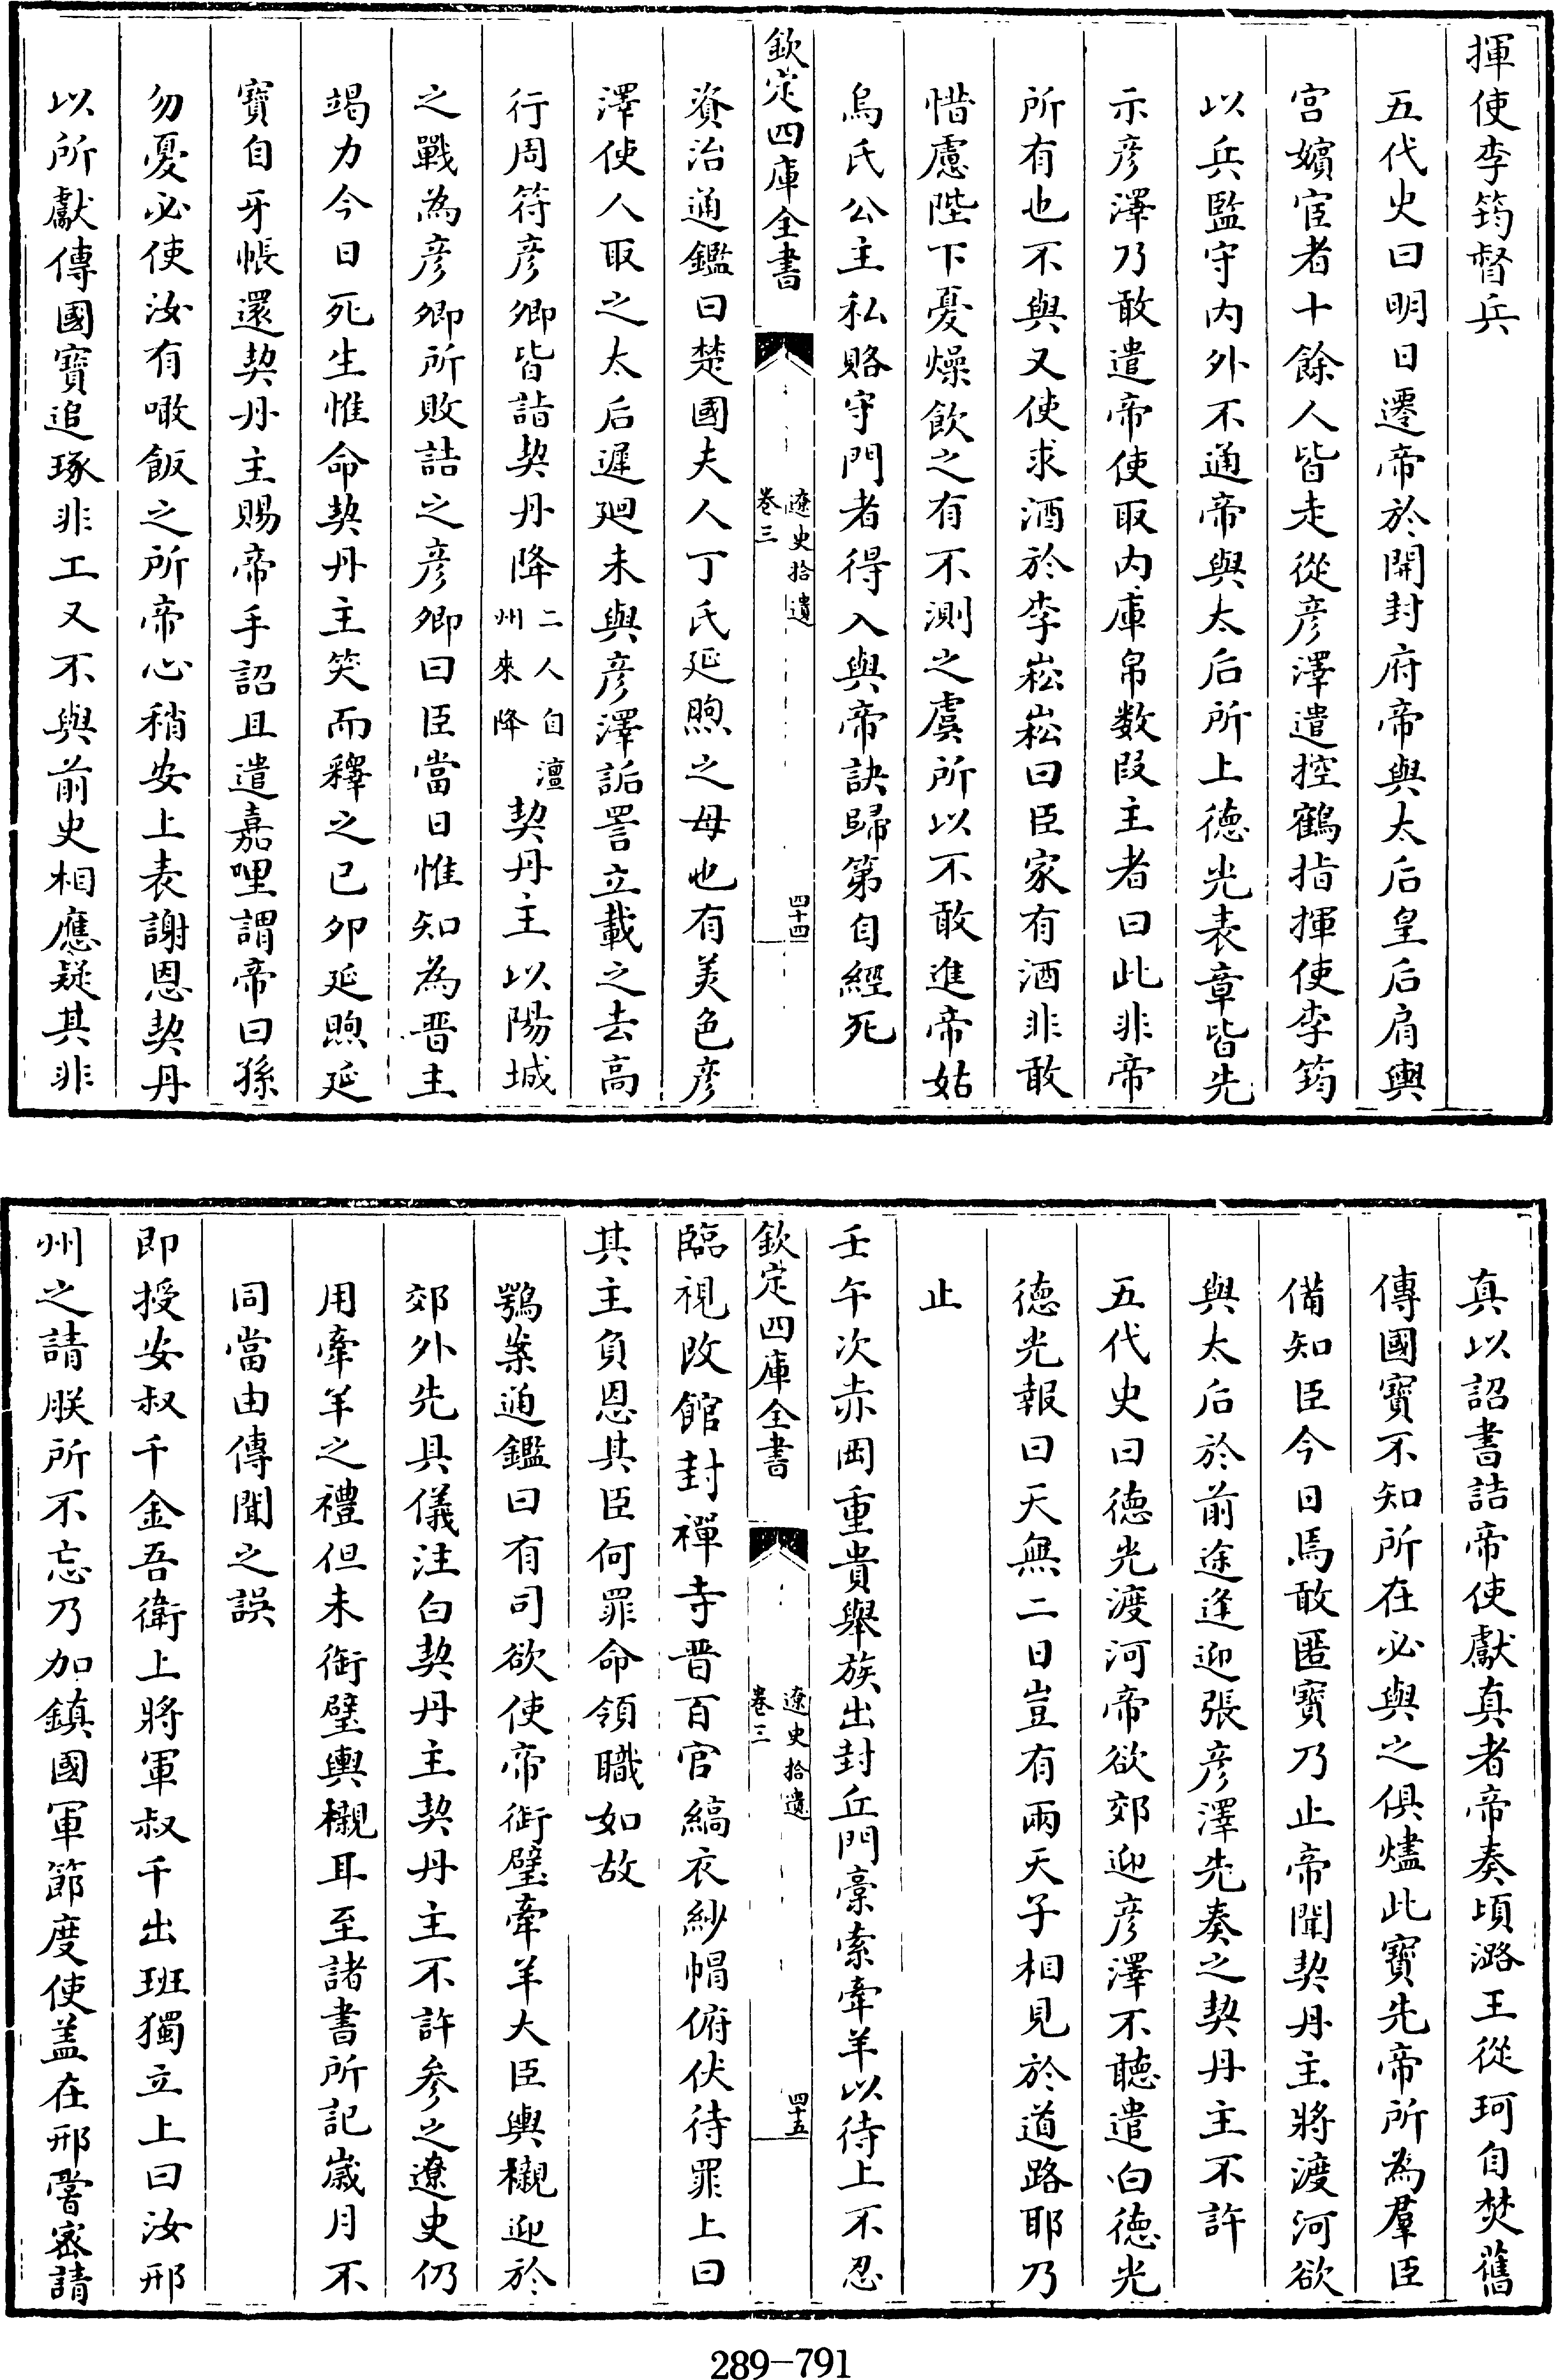 揮使李筠督兵
五代史曰明日遷帝於開封府帝與太后皇后肩輿
宫嬪宦者十餘人皆走從彦澤遣控鶴指揮使李筠
以兵監守内外不通帝與太后所上德光表章皆先
示彦澤乃敢遣帝使取内庫帛数段主者曰此非帝
所有也不與又使求酒於李崧崧曰臣家有酒非敢
惜慮陛下憂燥飲之有不測之虞所以不敢進帝姑
烏氏公主私賂守門者得入與帝訣歸第自經死
欽定四庫全書
遼史拾遺
卷三
四十四
資治通鑑曰楚國夫人丁氏延煦之母也有美色彦
澤使人取之太后遲廻未與彦澤詬詈立載之去高
行周符彦卿皆詣契丹降二人自澶州來降契丹主以陽城
之戰為彦卿所敗詰之彦卿曰臣當日惟知為晋主
竭力今日死生惟命契丹主笑而釋之已卯延煦延
寳自牙帳還契丹主賜帝手詔且遣嘉哩謂帝曰孫
勿憂必使汝有噉飯之所帝心稍安上表謝恩契丹
以所獻傳國寳追琢非工又不與前史相應疑其非
真以詔書詰帝使獻真者帝奏頃潞王從珂自焚舊
傳國寳不知所在必與之俱燼此寳先帝所為羣臣
備知臣今日焉敢匿寳乃止帝聞契丹主將渡河欲
與太后於前途逢迎張彦澤先奏之契丹主不許
五代史曰德光渡河帝欲郊迎彦澤不聽遣白德光
德光報曰天無二日豈有兩天子相見於道路耶乃
止
壬午次赤岡重貴舉族出封丘門稾索牽羊以待上不忍
欽定四庫全書
遼史拾遺
卷三
四十五
臨視改館封禪寺晋百官縞衣紗帽俯伏待罪上曰
其主負恩其臣何罪命領職如故
鶚案通鑑曰有司欲使帝銜璧牽羊大臣輿櫬迎於
郊外先具儀注白契丹主契丹主不許参之遼史仍
用牽羊之禮但未銜璧輿櫬耳至諸書所記嵗月不
同當由傳聞之誤
即授安叔千金吾衛上將軍叔千出班獨立上曰汝邢
州之請朕所不忘乃加鎮國軍節度使盖在邢嘗密請
289-791